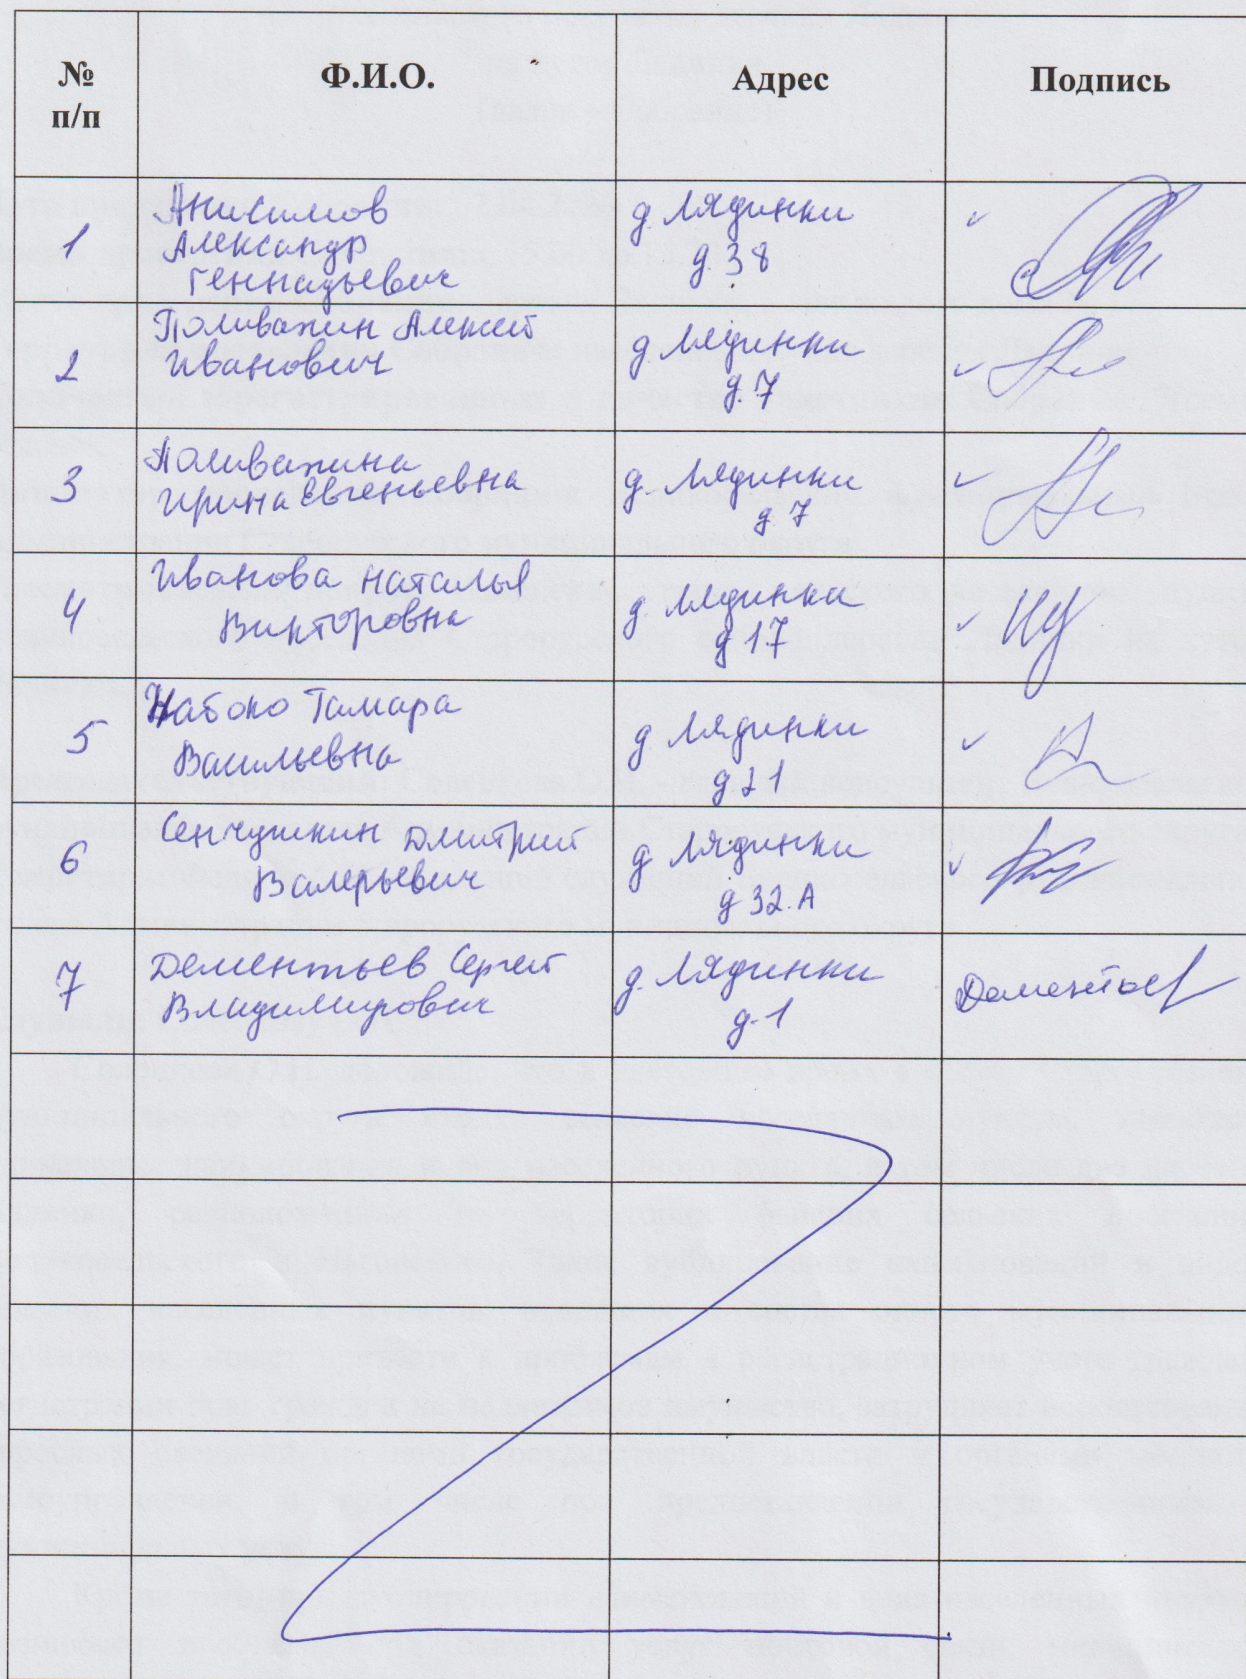 № п/п Ф.И.О. Адрес Подпись
1 Анисимов Александр Геннадьевич д. Лядинки д. 38
2 Поливахин Алексей Иванович д. Лядинки д. 7
3 Поливахина Ирина Евгеньевна д. Лядинки д. 7
4 Иванова Наталья Викторовна д. Лядинки д 17
5 Набоко Тамара Васильевна д. Лядинки д 21
6 Сенчушкин Дмитрий Валерьевич д. Лядинки д 32.А
7 Дементьев Сергей Владимирович д. Лядинки д. 1 Дементьев